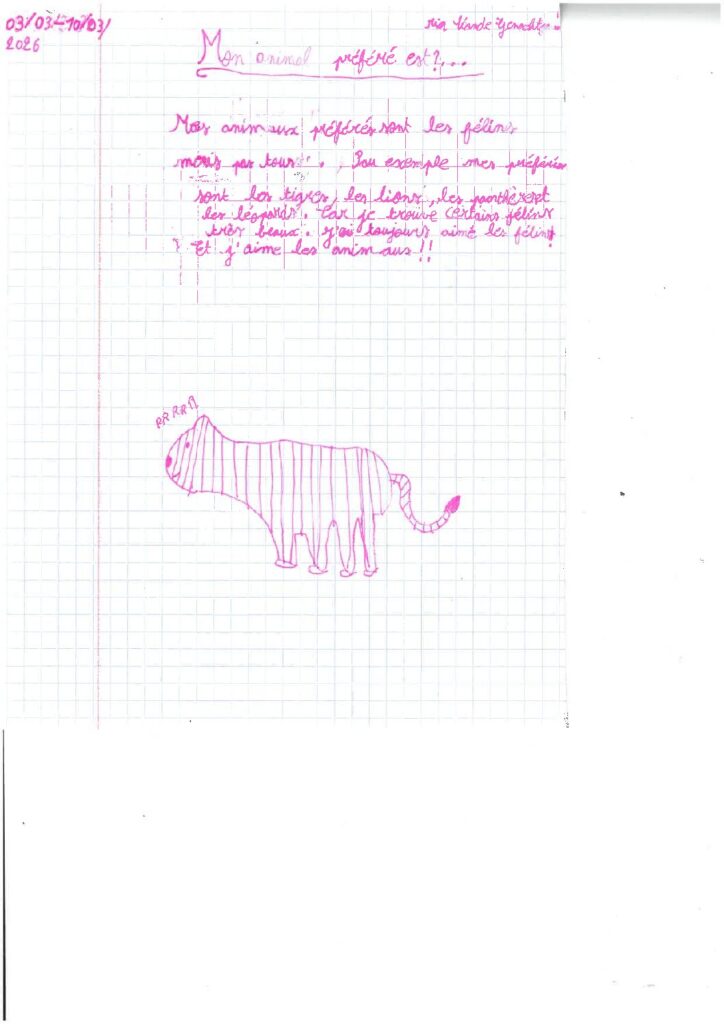 03/03-10/03/
2026
Mon animal préféré est?...
Mes animaux préférés sont les félins
mais pas tous. Pou exemple mes préférés
sont les tigres, les lions, les panthères et
les léopards. Car je trouve certains félins
très beaux. J'ai toujours aimé les félins!
Et j'aime les animaus!!
RRRR